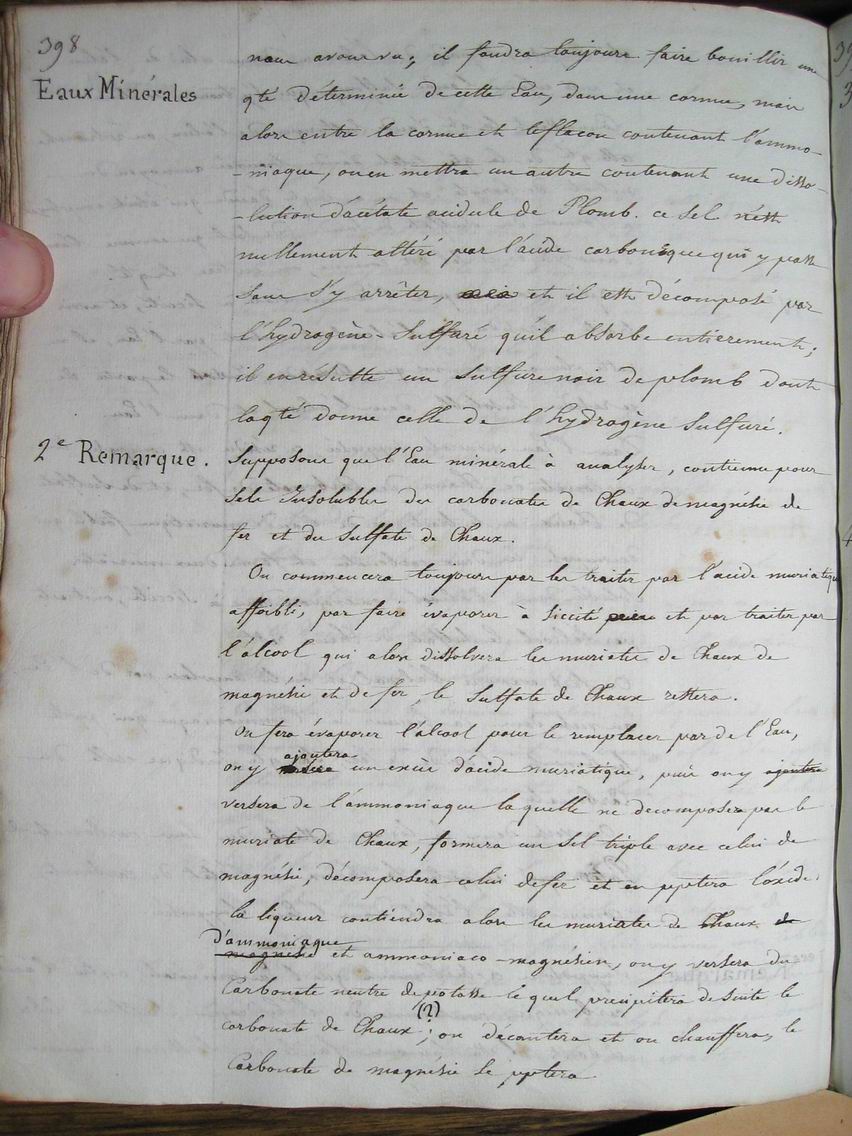 398
Eaux Minérales
nous avons vu; il faudra toujours faire bouillir une
qté déterminée de cette Eau, dans une cornue, mais
alors entre la cornue et le flacon contenant l'ammo-
-niaque, on en mettra un autre contenant une disso-
-lution d'acétate acidule de Plomb. ce sel n'est
nullement altéré par l'acide carbonique qui y passe
sans s'y arrêter, et il est décomposé par
l'hydrogène-Sulfuré qu'il absorbe entièrement;
il en resulte un Sulfure noir de plomb dont
la qté donne celle de l'hydrogène Sulfuré.
2e Remarque.
Supposons que l'Eau minérale à analyser, contienne pour
Sels Insolubles des carbonates de Chaux de magnésie de
fer et du Sulfate de Chaux.
On commencera toujours par les traiter par l'acide muriatique
affoibli, par faire évaporer à Siccité et par traiter par
l'alcool qui alors dissolvera les muriates de Chaux de
magnésie et de fer, le Sulfate de Chaux restera.
On fera évaporer l'alcool pour le remplacer par de l'Eau,
on y ajoutera un excès d'acide muriatique, puis on y ajoutera
versera de l'ammoniaque laquelle ne decomposera pas le
muriate de Chaux, formera un Sel triple avec celui de
magnésie, décomposera celui de fer et en pptera l'oxide.
la liqueur contiendra alors les muriates de Chaux de
d'ammoniaque
magnésie et ammoniaco-magnésien, on y versera du
Carbonate neutre de potasse lequel précipitera de suite le
carbonate de Chaux (2); on décantera et on chauffera, le
Carbonate de magnésie se pptera.